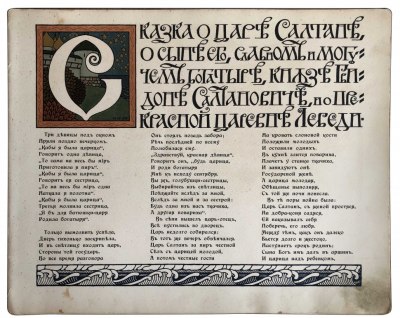 Сказка о царѣ Салтанѣ,
о сынѣ его, славномъ и могу-
чемъ богатырѣ, князѣ Гви-
донѣ Салтановичѣ, и о пре-
красной царевнѣ Лебеди.
Три дѣвицы подъ окномъ
Пряли поздно вечеркомъ.
"Кабы я была царица",
Говоритъ одна дѣвица,
"То сама на весь бы міръ
Приготовила я пиръ".
"Кабы я была царица",
Говоритъ ея сестрица,
"То на весь бы міръ одна
Наткала я полотна".
"Кабы я была царица",
Третья молвила сестрица,
"Я бъ для батюшки-царя
Родила богатыря".
Только вымолвить успѣла,
Дверь тихонько заскрипѣла,
И въ свѣтлицу входитъ царь,
Стороны той государь.
Во все время разговора
Онъ стоялъ позадь забора;
Рѣчь послѣдней по всему
Полюбилася ему.
"Здравствуй, красная дѣвица",
Говоритъ онъ, "будь царица
И роди богатыря
Мнѣ къ исходу сентября.
Вы жъ, голубушки-сестрицы,
Выбирайтесь изъ свѣтлицы,
Поѣзжайте вслѣдъ за мной,
Вслѣдъ за мной и за сестрой:
Будь одна изъ васъ ткачиха,
А другая повариха".
Въ сѣни вышелъ царь-отецъ.
Всѣ пустились во дворецъ.
Царь недолго собирался:
Въ тотъ же вечеръ обвѣнчался.
Царь Салтанъ за пиръ честной
Сѣлъ съ царицей молодой;
А потомъ честные гости
На кровать слоновой кости
Положили молодыхъ
И оставили однихъ.
Въ кухнѣ злится повариха,
Плачетъ у станка ткачиха,
И завидуютъ онѣ
Государевой женѣ.
А царица молодая,
Обѣщанье выполняя,
Съ той же ночи понесла.
Въ тѣ поры война была.
Царь Салтанъ, съ женой простяся,
На добра-коня садяся,
Ей наказывалъ себя
Поберечь, его любя.
Между тѣмъ, какъ онъ далеко
Бьется долго и жестоко,
Наступаетъ срокъ родинъ;
Сына Богъ имъ далъ въ аршинъ,
И царица надъ ребенкомъ,